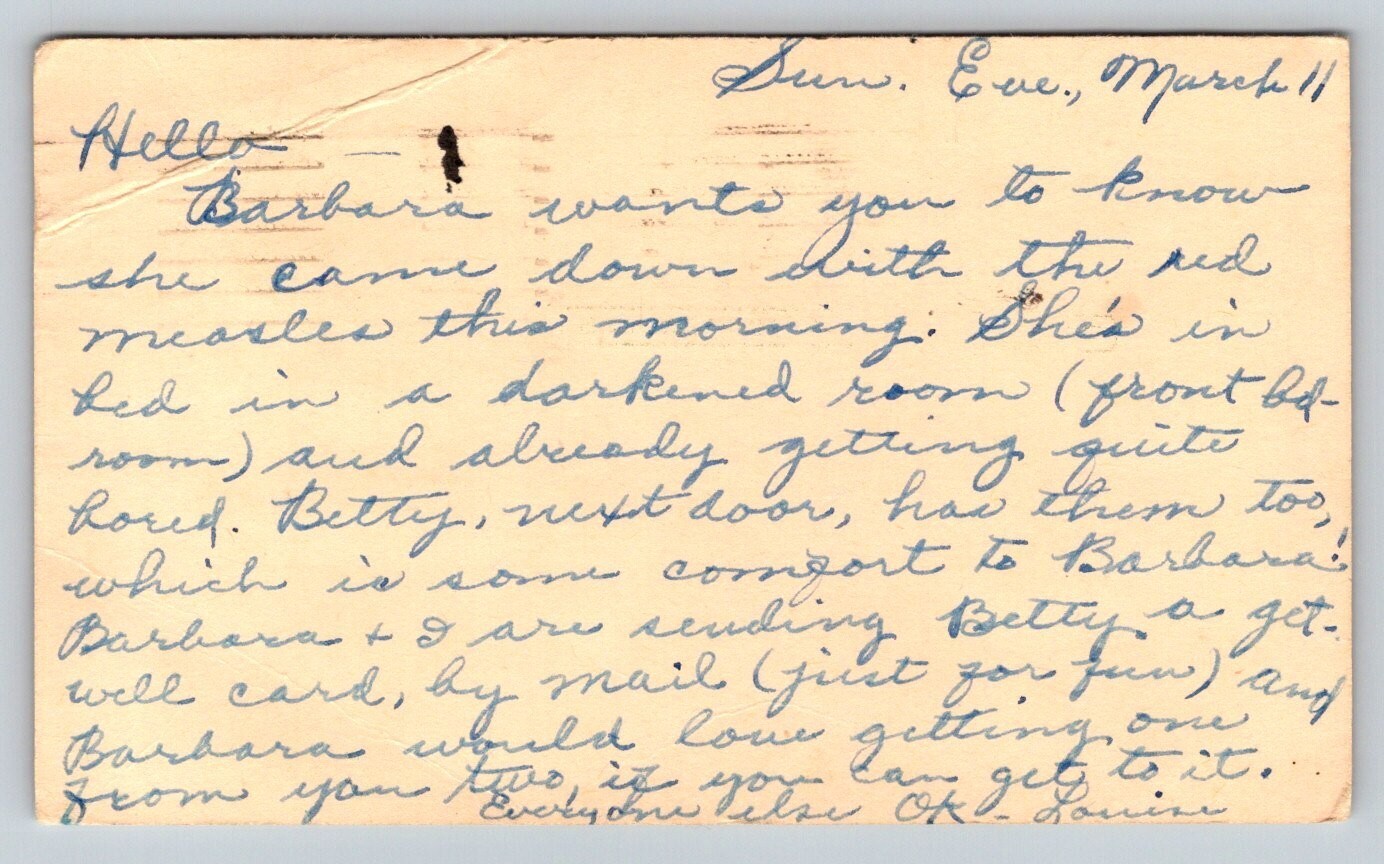 Sun. Eve., March 11
Hello —
Barbara wants you to know
she came down with the red
measles this morning. She's in
bed in a darkened room (front bd-
room) and already getting quite
bored. Betty, next door, has them too,
which is some comfort to Barbara!
Barbara + I are sending Betty a get-
well card, by mail (just for fun) and
Barbara would love getting one
from you two, if you can get to it.
Everyone else OK - Louise